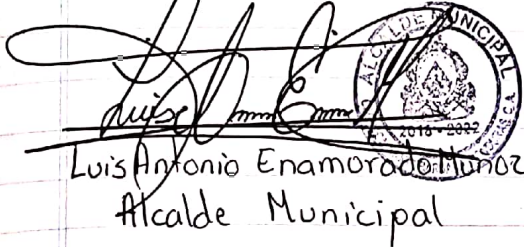 ALCALDE MUNICIPAL
2018 - 2022
Luis Antonio Enamorado Muñoz
Alcalde Municipal